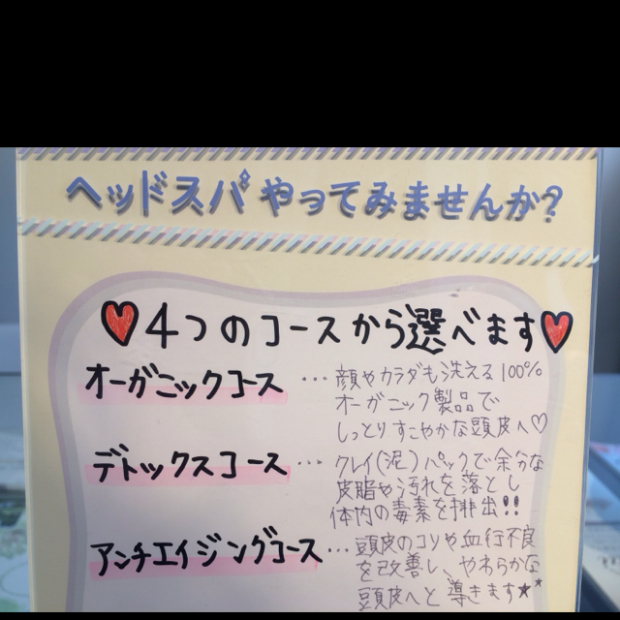 ヘッドスパやってみませんか?
♥4つのコースから選べます♥
オーガニックコース …顔やカラダも洗える100%
オーガニック製品で
しっとりすこやかな頭皮へ♡
デトックスコース …クレイ(泥)パックで余分な
皮脂や汚れを落とし
体内の毒素を排出!!
アンチエイジングコース …頭皮のコリや血行不良
を改善し、やわらかな
頭皮へと導きます★*